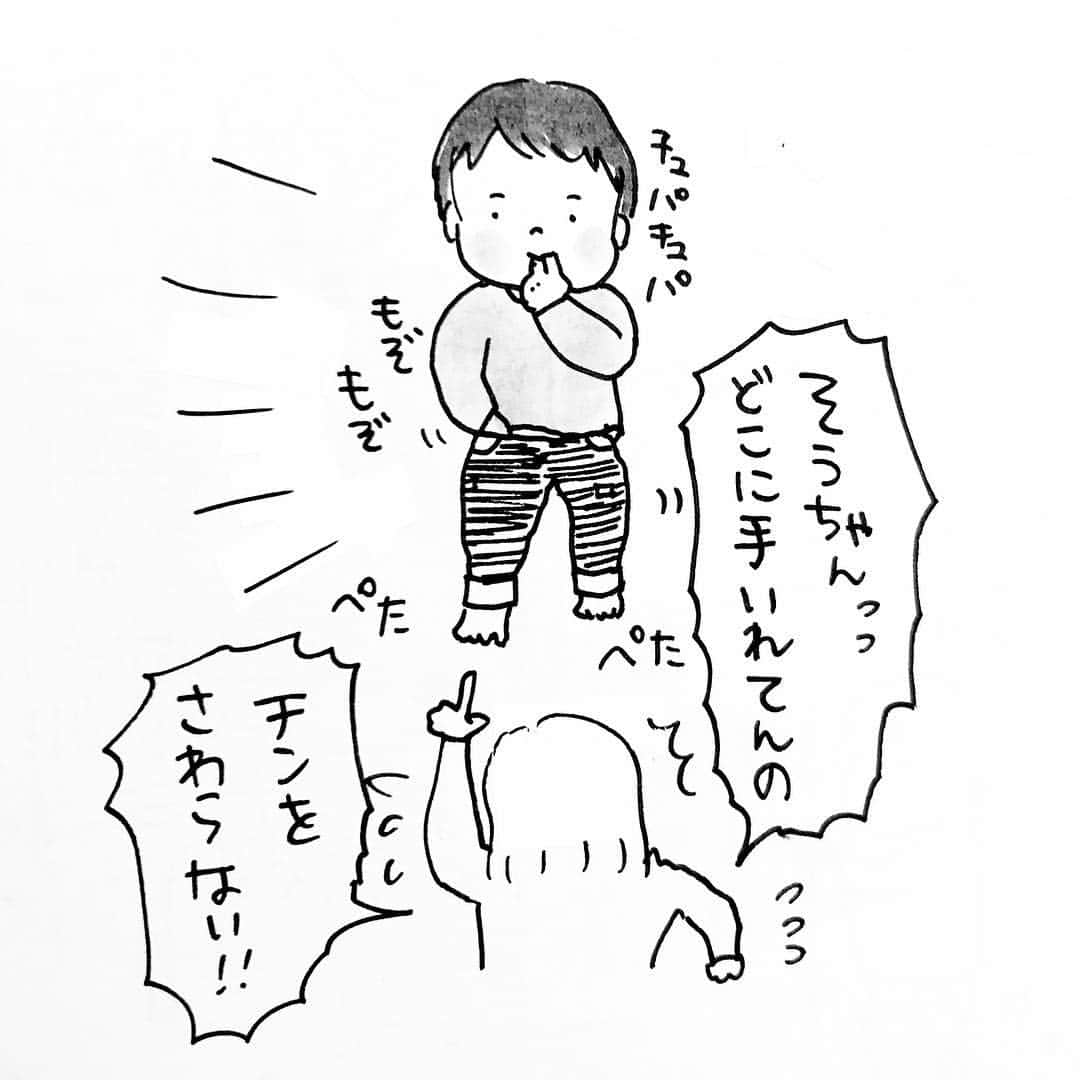 チュパキュパ
もぞ
もぞ
そうちゃんっっ
どこに手いれてんの
ぺた
ぺた
チンを
さわらない!!
っっっ